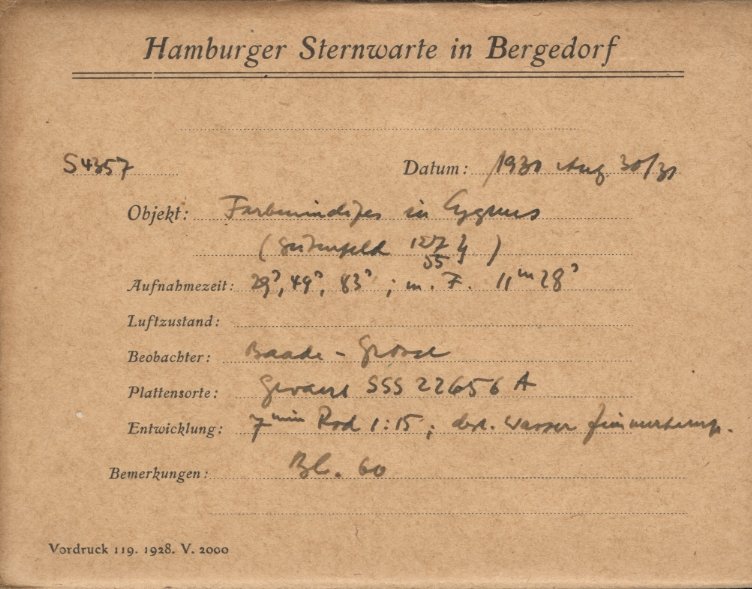 Hamburger Sternwarte in Bergedorf
S4357
Datum: 1930 Aug 30/31
Objekt: Farbenindizes in Cygnus
( 127 )
55
Aufnahmezeit: 29ˢ, 49ˢ, 83ˢ ; m. F. 11ᵐ 28ˢ
Luftzustand:
Beobachter: Baade -
Plattensorte: Gevaert SSS 22656 A
Entwicklung: 7ᵐⁱⁿ Rod 1:15 ; dest. Wasser Zimmertemp.
Bemerkungen: Bl. 60
Vordruck 119. 1928. V. 2000